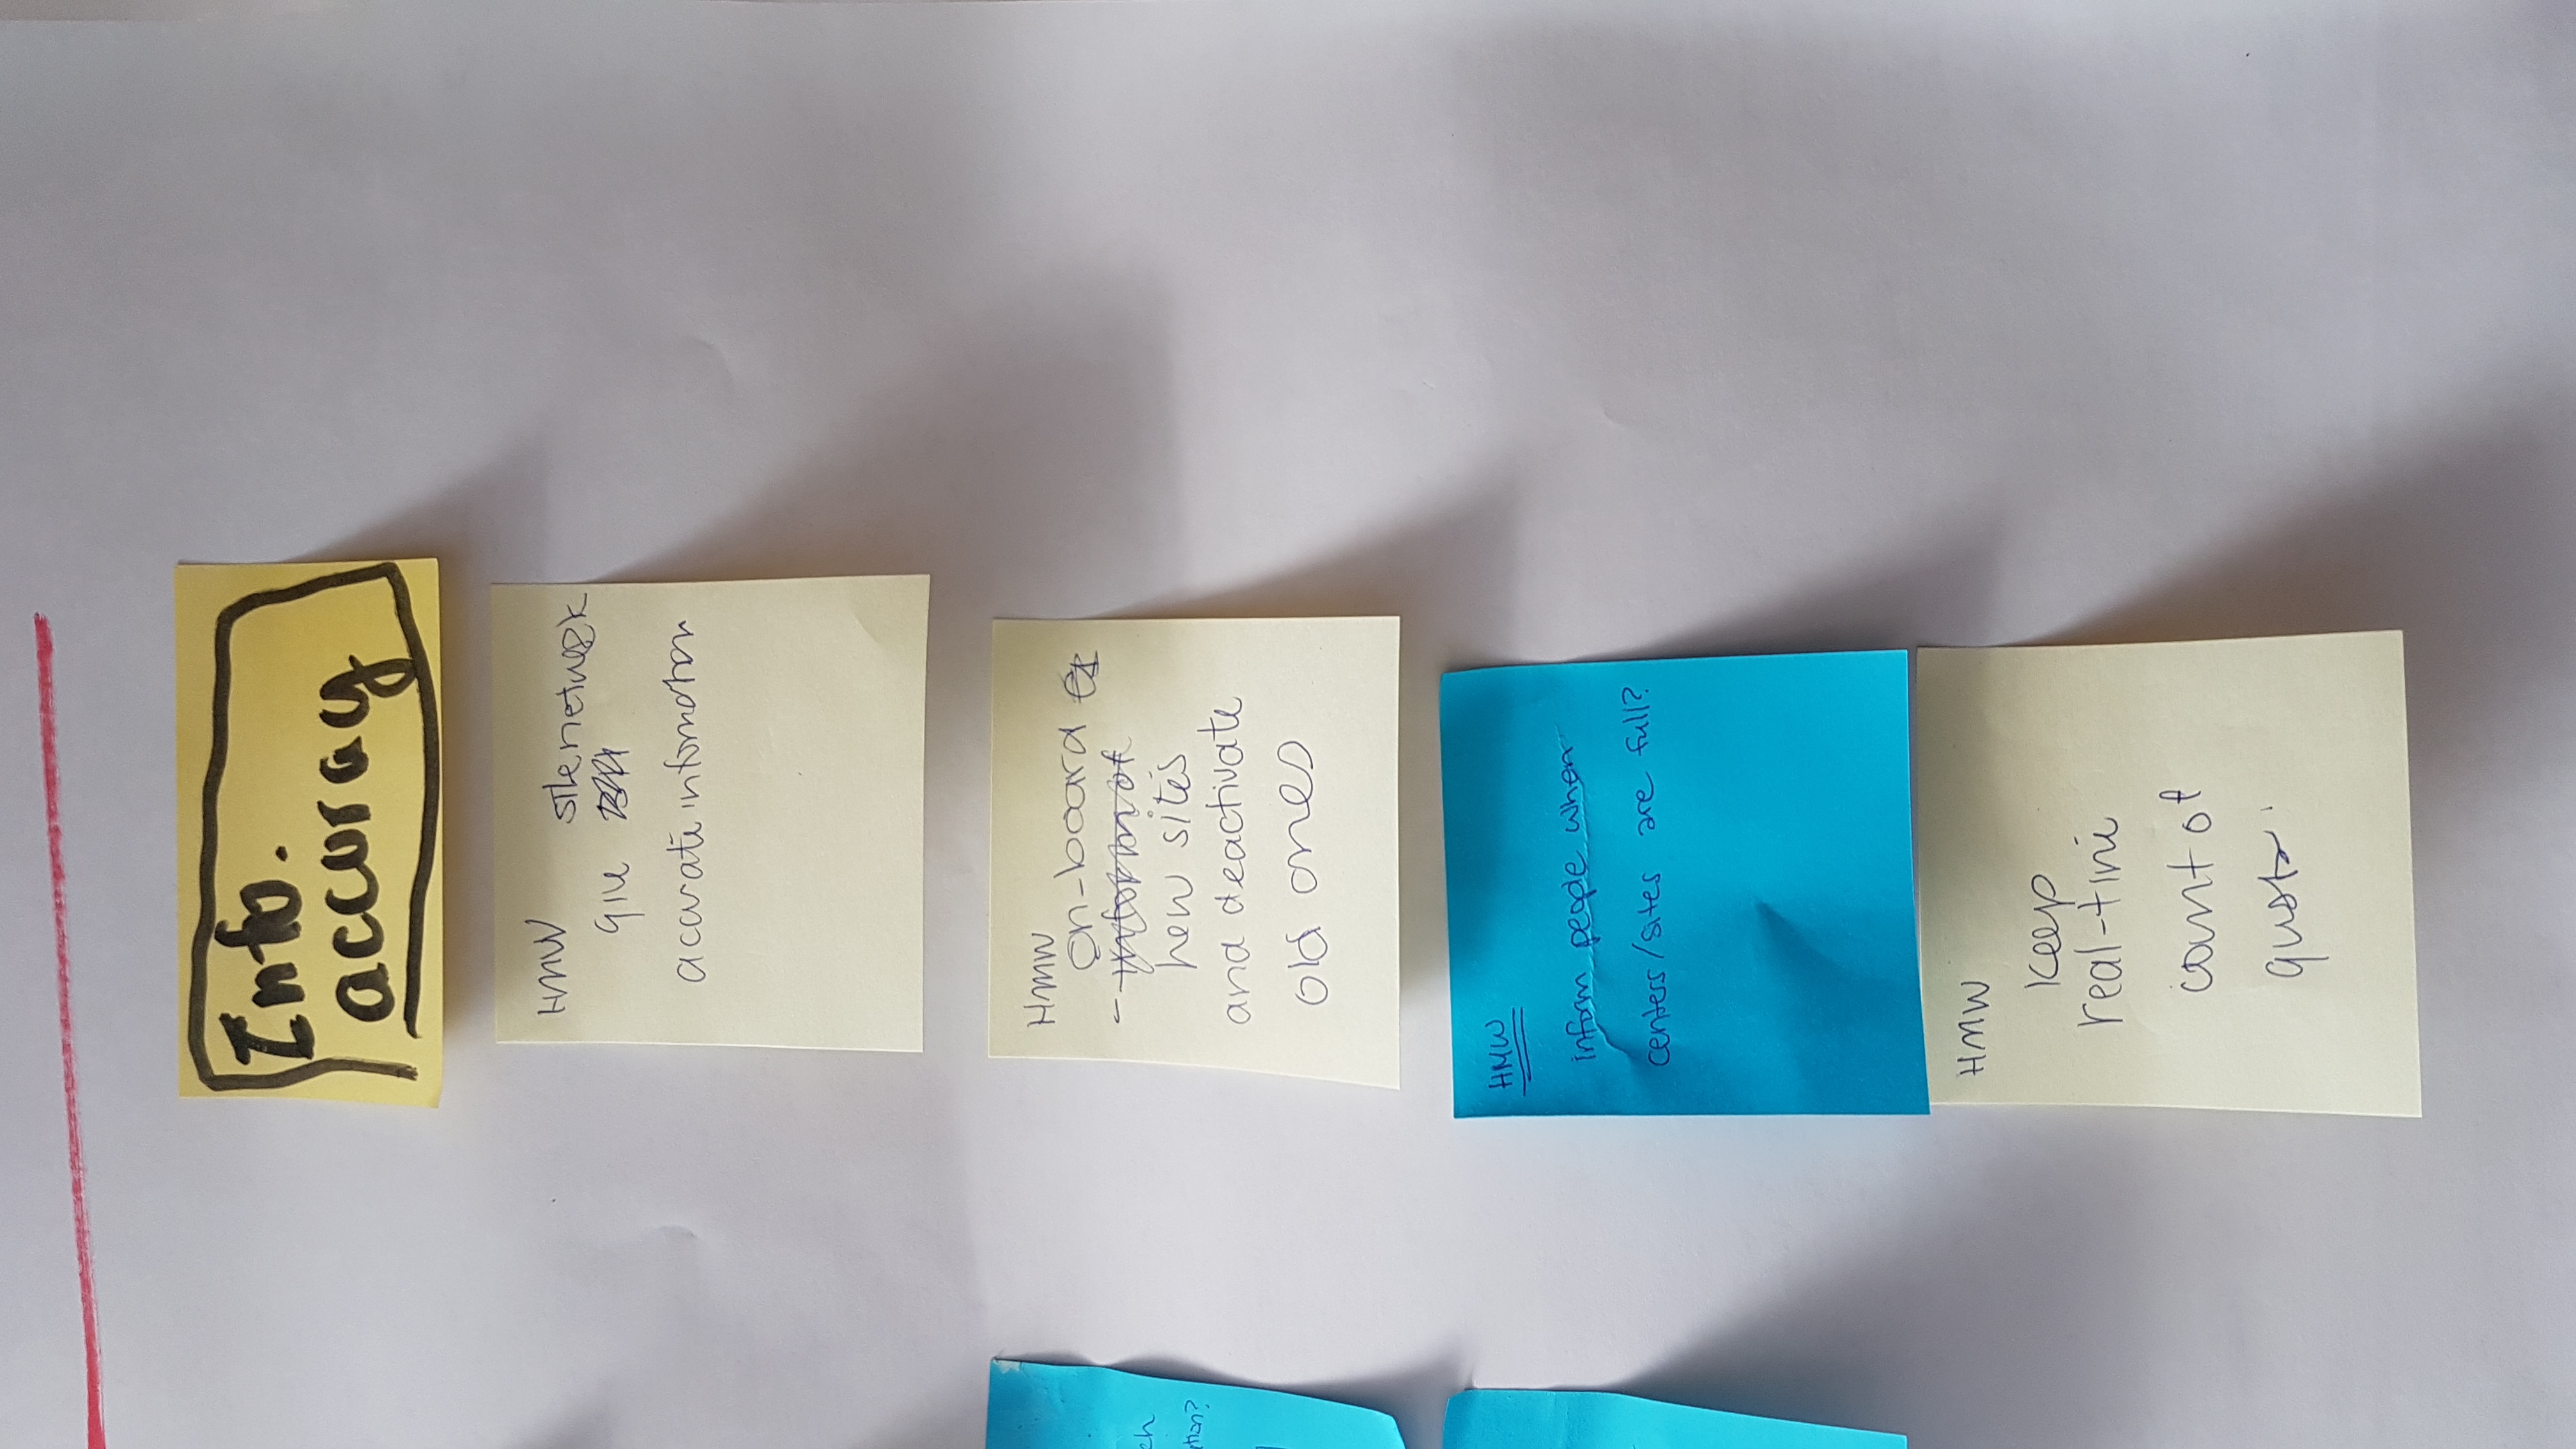 Info.
accuracy
HMW
site network
give
accurate information
HMW
on-board
- informat
new sites
and deactivate
old ones
ch
ption?
HMW
inform people when
centers/sites are full?
HMW
keep
real-time
count of